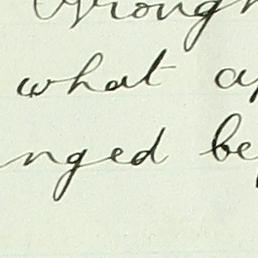 Wrough
what a
nged be